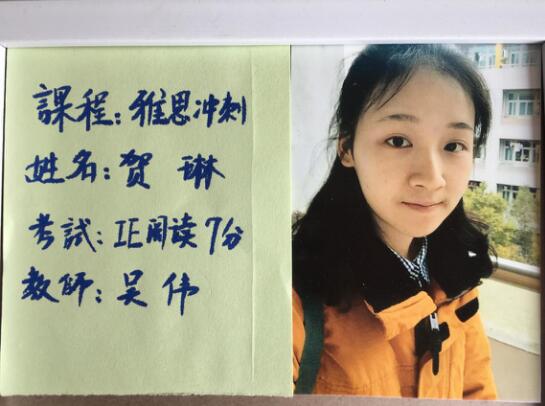 課程：雅思冲刺
姓名：贺琳
考試：IE阅读7分
教師：吴伟